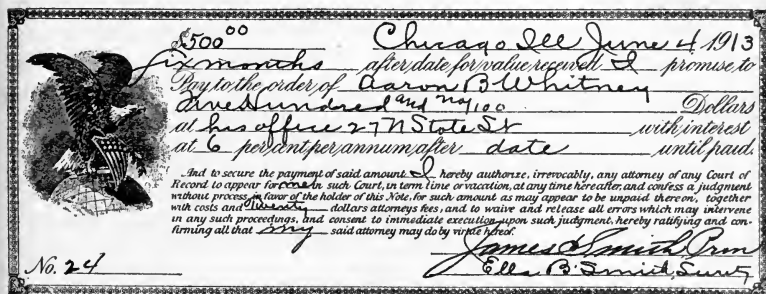 $500 00 Chicago Ill June 4 1913
Six months after date for value received I promise to
Pay to the order of Aaron B Whitney
Five Hundred and no/100 Dollars
at his office 27 N State St with interest
at 6 per cent per annum, after date until paid.
And to secure the payment of said amount I hereby authorize, irrevocably, any attorney of any Court of
Record to appear for me in such Court, in term time or vacation, at any time hereafter, and confess a judgment
without process, in favor of the holder of this Note, for such amount as may appear to be unpaid thereon, together
with costs and Twenty dollars attorneys fees, and to waive and release all errors which may intervene
in any such proceedings, and consent to immediate execution upon such judgment, hereby ratifying and con-
firming all that my said attorney may do by virtue hereof.
James Smith Prin
No. 24 Ella B. Smith, Surety